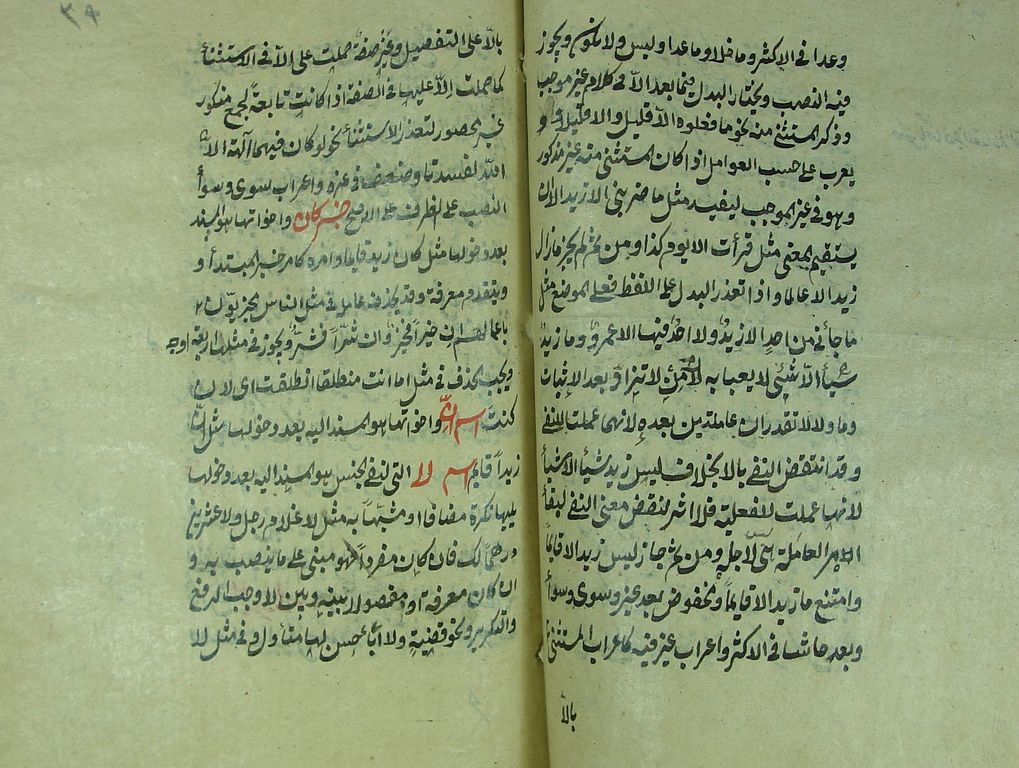 وعدا في الاكثر وما خلا وما عدا وليس ولا يكون ويجوز
فيه النصب ويختار البدل فيما بعد الا في كلام غير موجب
وذكر المستثنى منه نحو ما فعلوه الا قليل والا قليلا و
يعرب على حسب العوامل اذا كان المستثنى منه غير مذكور
وهو في غير الموجب ليفيد مثل ما ضربني الا زيد الا ان
يستقيم المعنى مثل قرأت الا يوم كذا ومن ثم لم يجز ما زال
زيد الا عالما واذا تعذر البدل على اللفظ فعلى الموضع مثل
ما جائني من احد الا زيد ولا احد فيها الا عمرو وما زيد
شيأ الا شيئ لا يعبأ به لان من لا تزاد بعد الاثبات
وما ولا لا تقدران عاملتين بعده لانهما عملت للنفي
وقد انتقض النفي بالا بخلاف ليس زيد شيأ الا شيأ
لانها عملت للفعلية فلا اثر لنقض معنى النفي لبقأ
الامر العاملة هي لاجله ومن ثم جاز ليس زيد الا قايما
وامتنع ما زيد الا قايما ومخفوض بعد غير وسوى وسوأ
وبعد حاشا في الاكثر واعراب غير فيه كاعراب المستثنى
بالا
٣٩
بالا على التفصيل وغير صفة حملت على الا في الاستثنأ
كما حملت الا عليها في الصفة اذا كانت تابعة لجمع منكور
غير محصور لتعذر الاستثنأ نحو لو كان فيهما آلهة الا
الله لفسدتا وضعف في غيره واعراب سوى وسوأ
النصب على الظرف على الاصح خبر كان واخواتها هو المسند
بعد دخولها مثل كان زيد قايما وامره كامر خبر المبتدأ و
ويتقدم معرفة وقد يحذف عامله في مثل الناس مجزيون
باعمالهم ان خيرا فخير وان شرا فشر ويجوز في مثلها اربعة اوجه
ويجب الحذف في مثل اما انت منطلقا انطلقت اى لان
كنت اسم ان واخواتها هو المسند اليه بعد دخولها مثل ان
زيدا قائم اسم لا التى لنفي الجنس هو المسند اليه بعد دخولها
يليها نكرة مضافا او مشبها به مثل لا غلام رجل ولا عشرين
درهما لك فان كان مفردا فهو مبنى على ما ينصب به و
ان كان معرفة او مفصولا بينه وبين لا وجب الرفع
والتكرير ونحو قضية ولا ابا حسن لها متأول وفي مثل لا